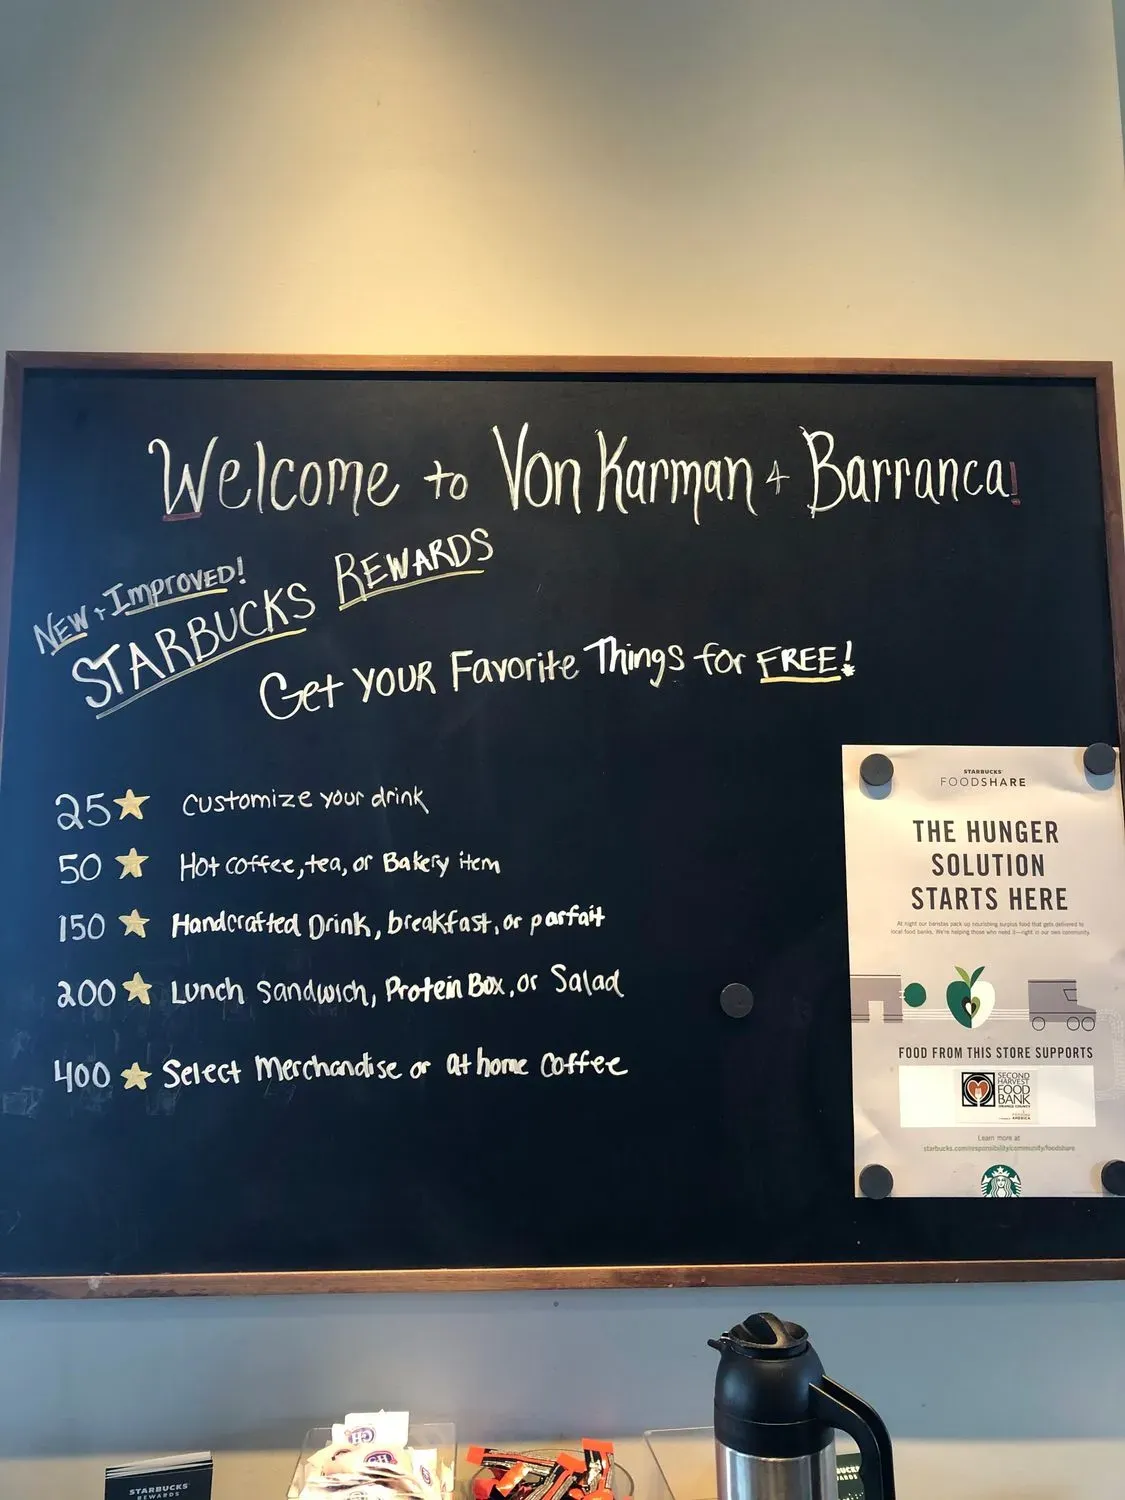 Welcome to Von Karman + Barranca!
NEW + IMPROVED!
STARBUCKS REWARDS
Get YOUR Favorite Things for FREE!
25 ★ Customize your drink
50 ★ Hot coffee, tea, or Bakery item
150 ★ Handcrafted Drink, breakfast, or parfait
200 ★ Lunch Sandwich, Protein Box, or Salad
400 ★ Select Merchandise or at home Coffee
STARBUCKS
FOODSHARE
THE HUNGER
SOLUTION
STARTS HERE
At night our baristas pack up nourishing surplus food that gets delivered to
local food banks. We're helping those who need it—right in our own community.
FOOD FROM THIS STORE SUPPORTS
SECOND
HARVEST
FOOD
BANK
ORANGE COUNTY
AMERICA
Learn more at
starbucks.com/responsibility/community/foodshare
C&H
C&H
STARBUCKS
REWARDS